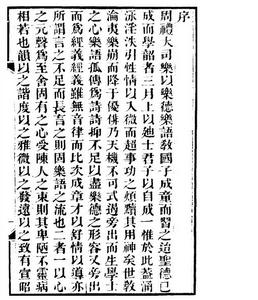 序
周禮大司樂以樂德樂語教國子成童而習之迨聖德已
成而學韶者三月上以迪士君子以自成一惟於此蓋涵
泳淫泆引性情以入微而超事功之煩黷其用神矣世教
淪夷樂崩而降于優俳乃天機不可式遏旁出而生學士
之心樂語孤傳為詩詩抑不足以盡樂德之形容又旁出
而為經義經義雖無音律而比次成章才以舒情以導亦
所謂言之不足而長言之則固樂語之流也二者一以心
之元聲為至舍固有之心受陳人之束則其卑陋不靈病
相若也韻以之諧度以之雅微以之發遠以之致有宣昭